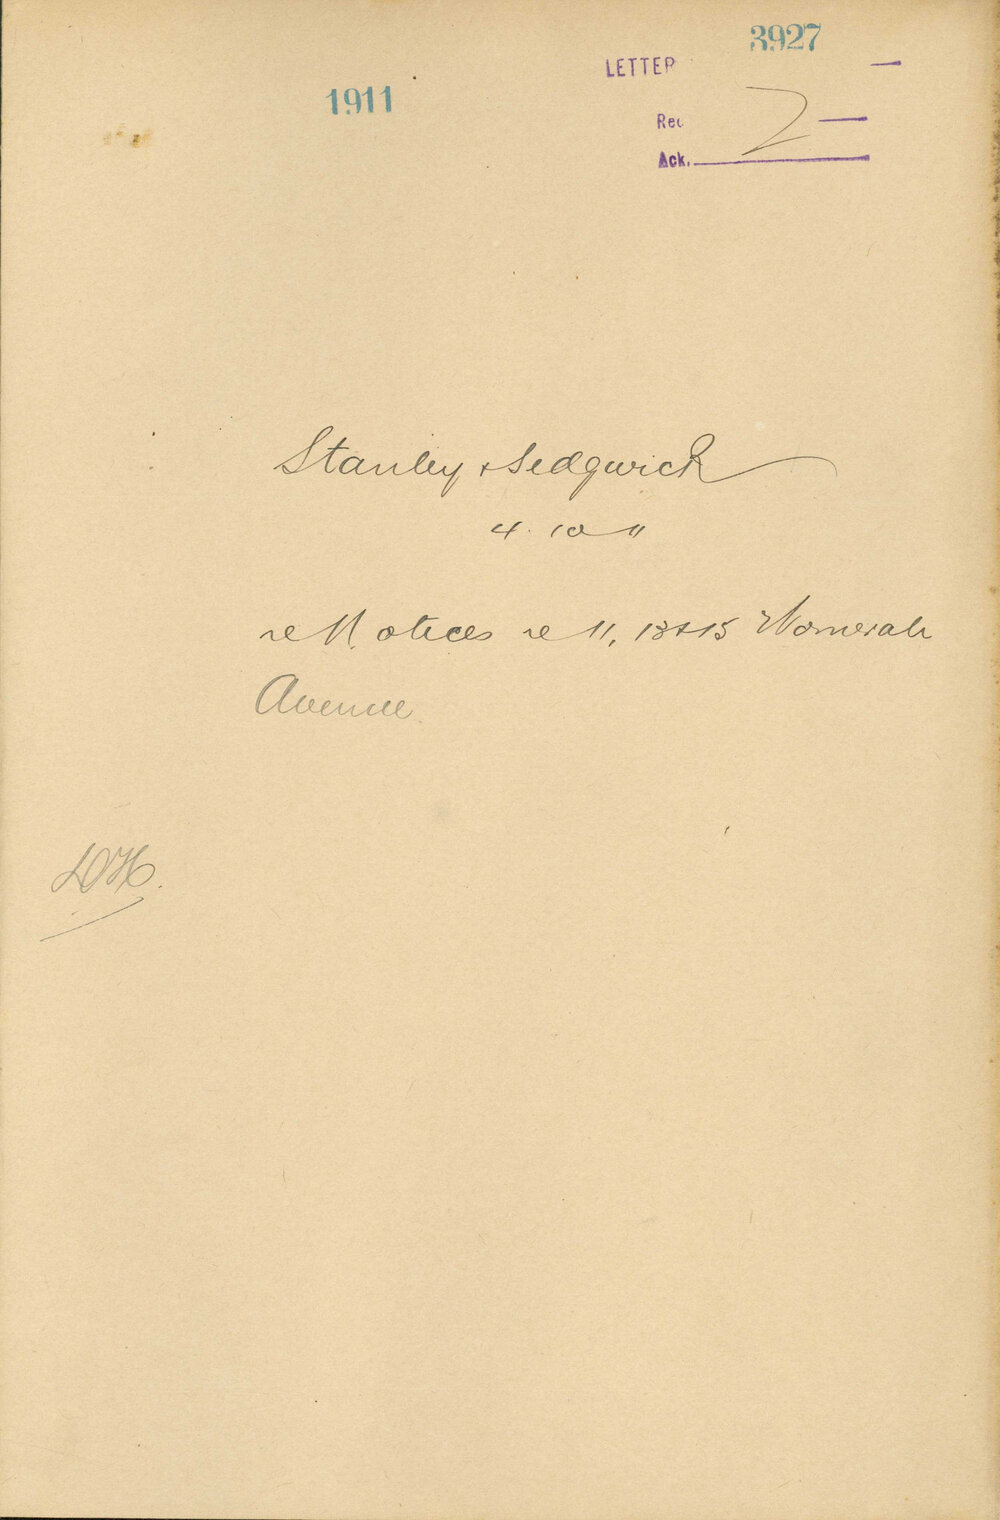 3927
LETTER
1911
Rec
Ack.
Stanley & Sedgwick
4. 10 11
re Notices re 11, 13 & 15 Womerah
Avenue
DH.